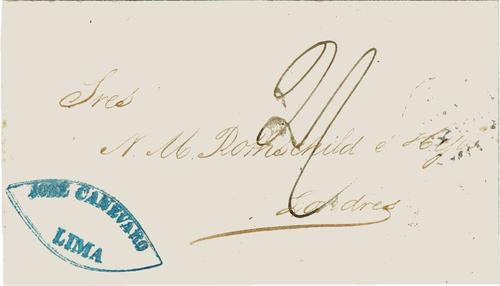 Sres
N. M. Rothschild é Hijos
Londres
JOSÉ CANEVARO
LIMA